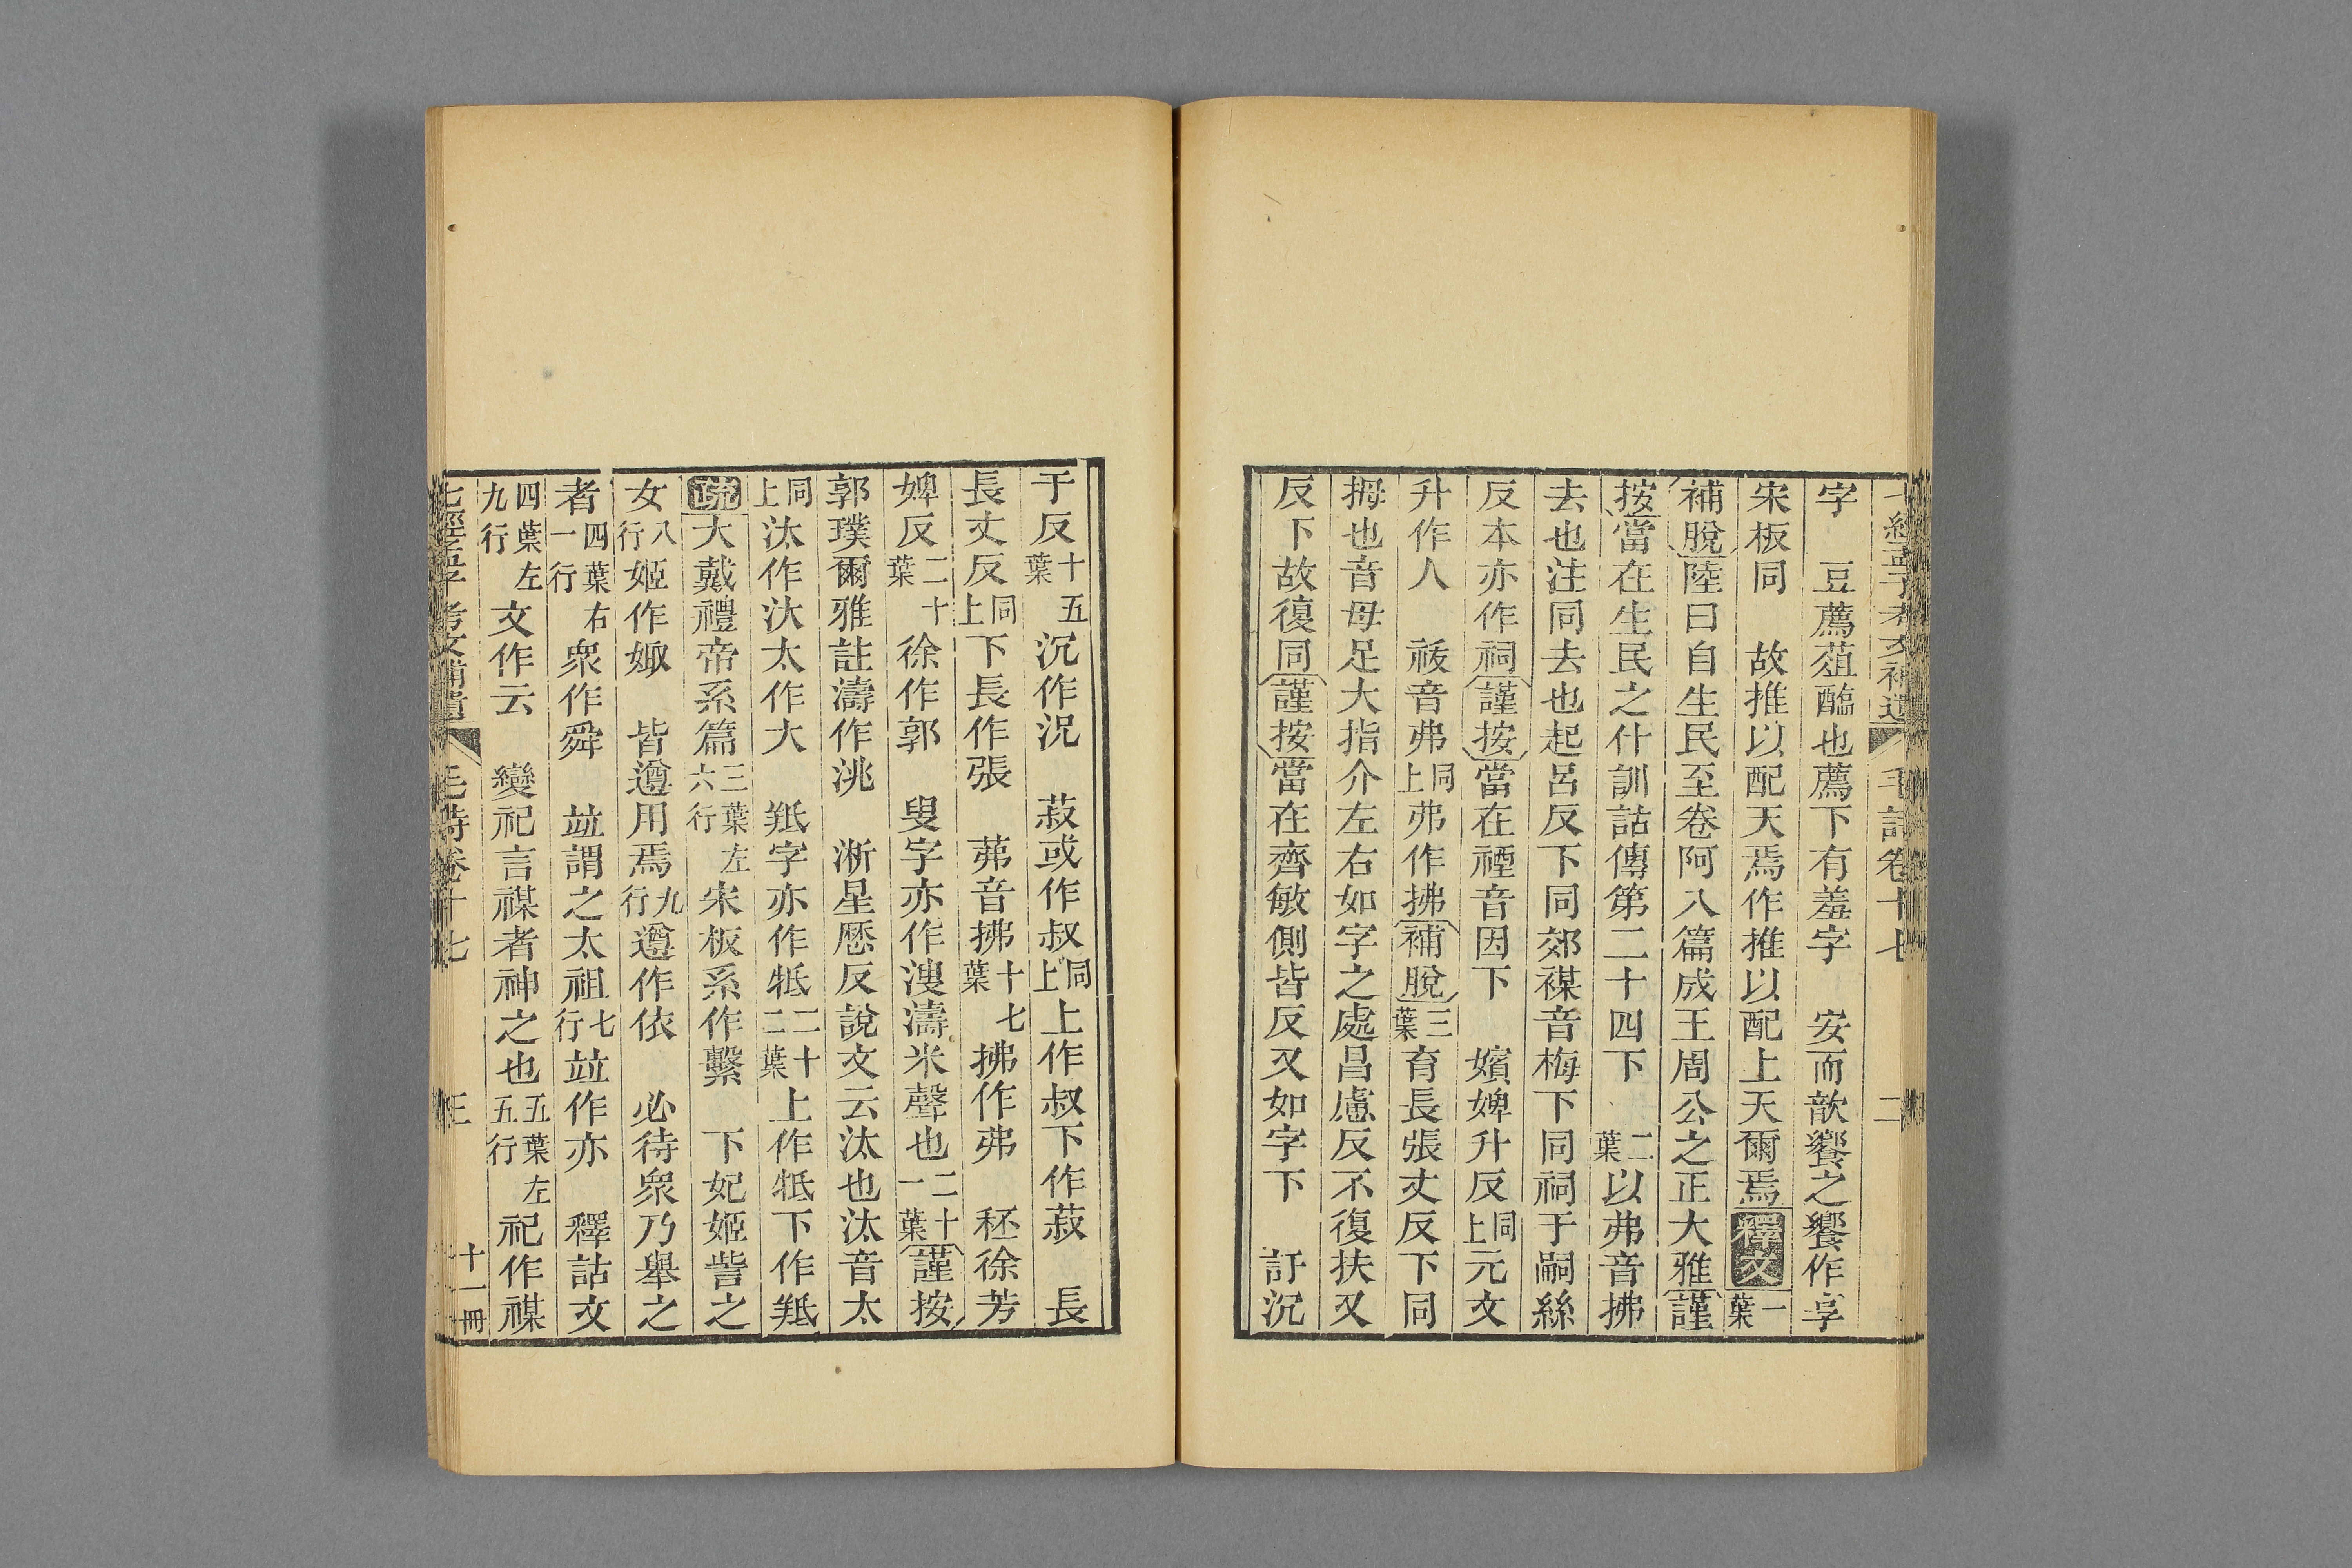 七經孟子考文補遺 毛詩卷十七 二
字 豆薦葅醢也薦下有羞字 安而歆饗之饗作享
宋板同 故推以配天焉作推以配上天爾焉釋文一葉
補脫陸曰自生民至卷阿八篇成王周公之正大雅謹
按當在生民之什訓詁傳第二十四下 二葉以弗音拂
去也注同去也起呂反下同郊禖音梅下同祠于嗣絲
反本亦作祠謹按當在禋音因下 嬪婢升反同上元文
升作人 祓音弗同上弗作拂補脫三葉育長張丈反下同
拇也音母足大指介左右如字之處昌慮反不復扶又
反下故復同謹按當在齊敏側皆反又如字下 訏沉
于反十五葉沉作況 菽或作叔同上上作叔下作菽 長
長丈反同上下長作張 茀音拂十七葉拂作弗 秠徐芳
婢反二十葉徐作郭 叟字亦作溲濤米聲也二十一葉謹按
郭璞爾雅註濤作洮 淅星歷反說文云汰也汰音太
同上汰作汏太作大 羝字亦作牴二十二葉上作牴下作羝
疏大戴禮帝系篇三葉左六行宋板系作繫 下妃姬訾之
女八行姬作娵 皆遵用焉九行遵作依 必待衆乃舉之
者四葉右一行衆作舜 竝謂之太祖七行竝作亦 釋詁文
四葉左九行文作云 變祀言禖者神之也五葉左五行祀作禖
七經孟子考文補遺 毛詩卷十七 三 十一冊